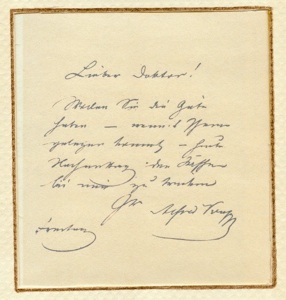 Lieber Doktor!
Wollen Sie die Güte
haben – wenn's Ihnen
gelegen kommt – heute
Nachmittag den Kaffee
bei mir zu trinken
Ihr
Alfred
Freitag